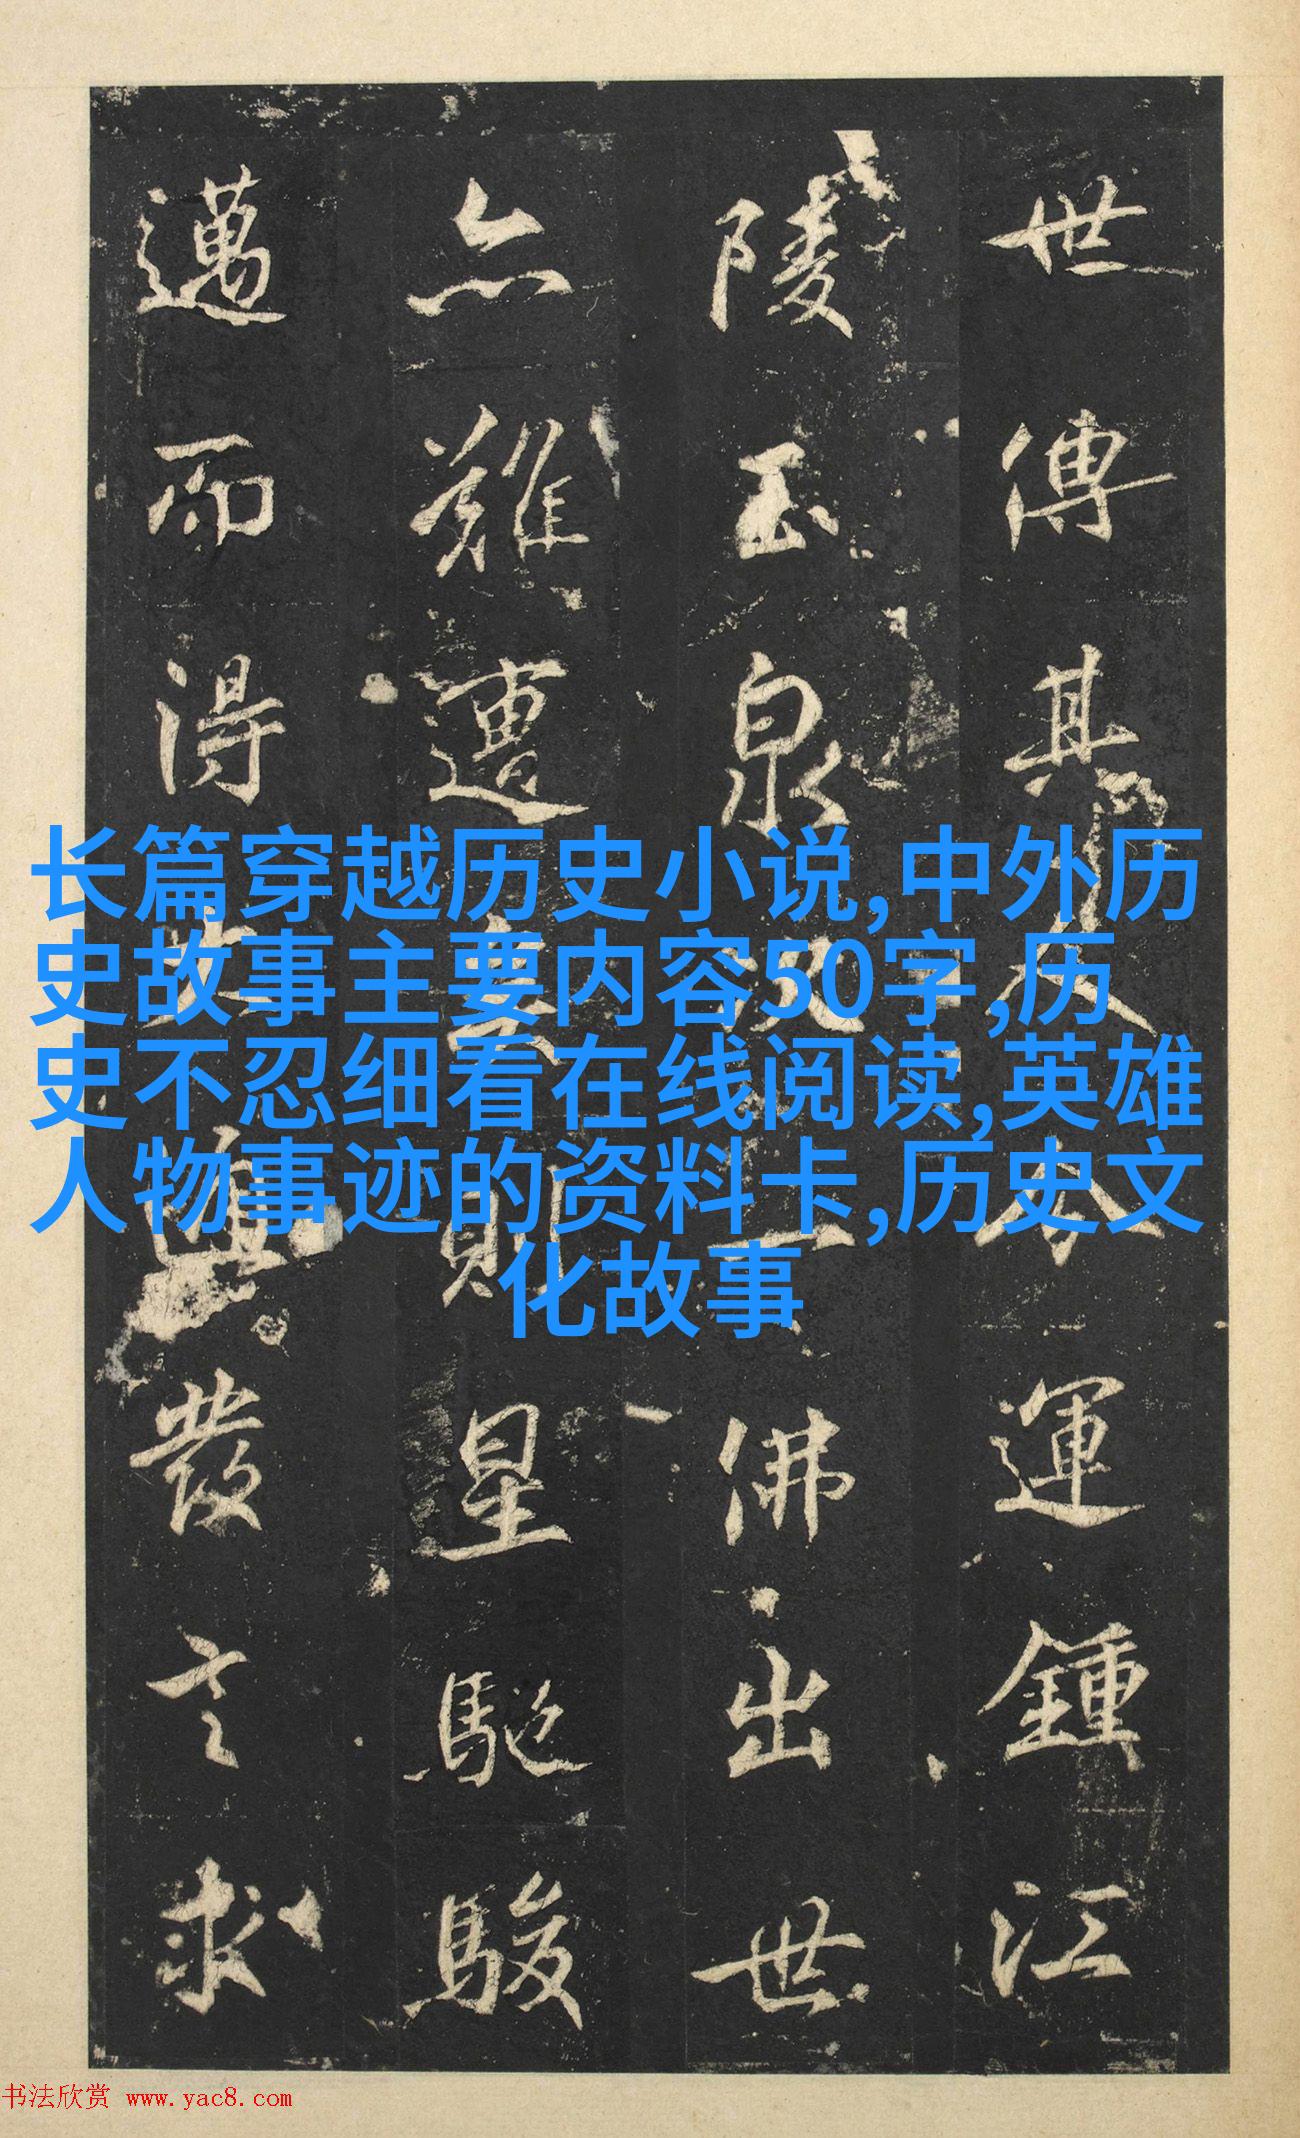 世傳其今運鍾江
陵玉泉一佛出世
亦難遭則星馳駿
邁而得發求
长篇穿越历史小说,中外历
史故事主要内容50字,历
史不忍细看在线阅读,英雄
人物事迹的资料卡,历史文
化故事
书法欣赏 www.yac8.com